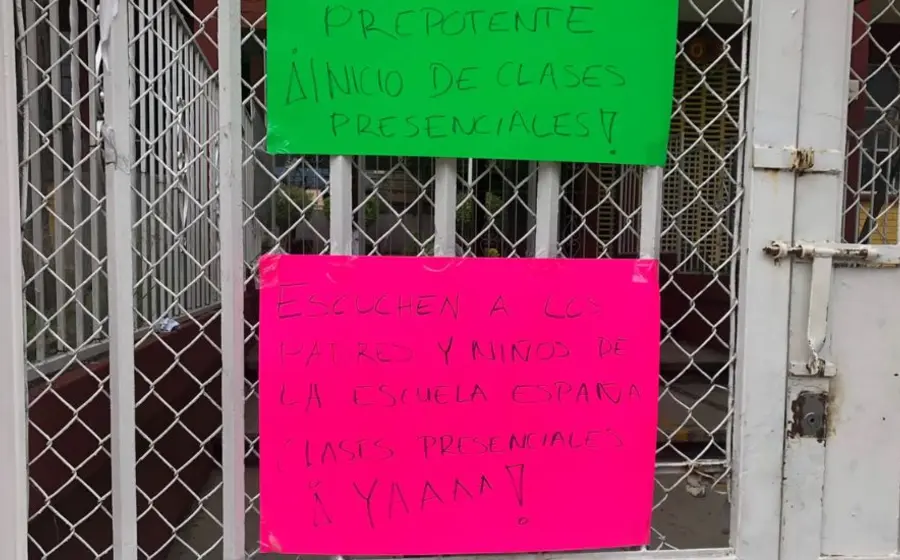 PREPOTENTE
¡INICIO DE CLASES
PRESENCIALES!
ESCUCHEN A LOS
PADRES Y NIÑOS DE
LA ESCUELA ESPAÑA
CLASES PRESENCIALES
¡YAAAA!